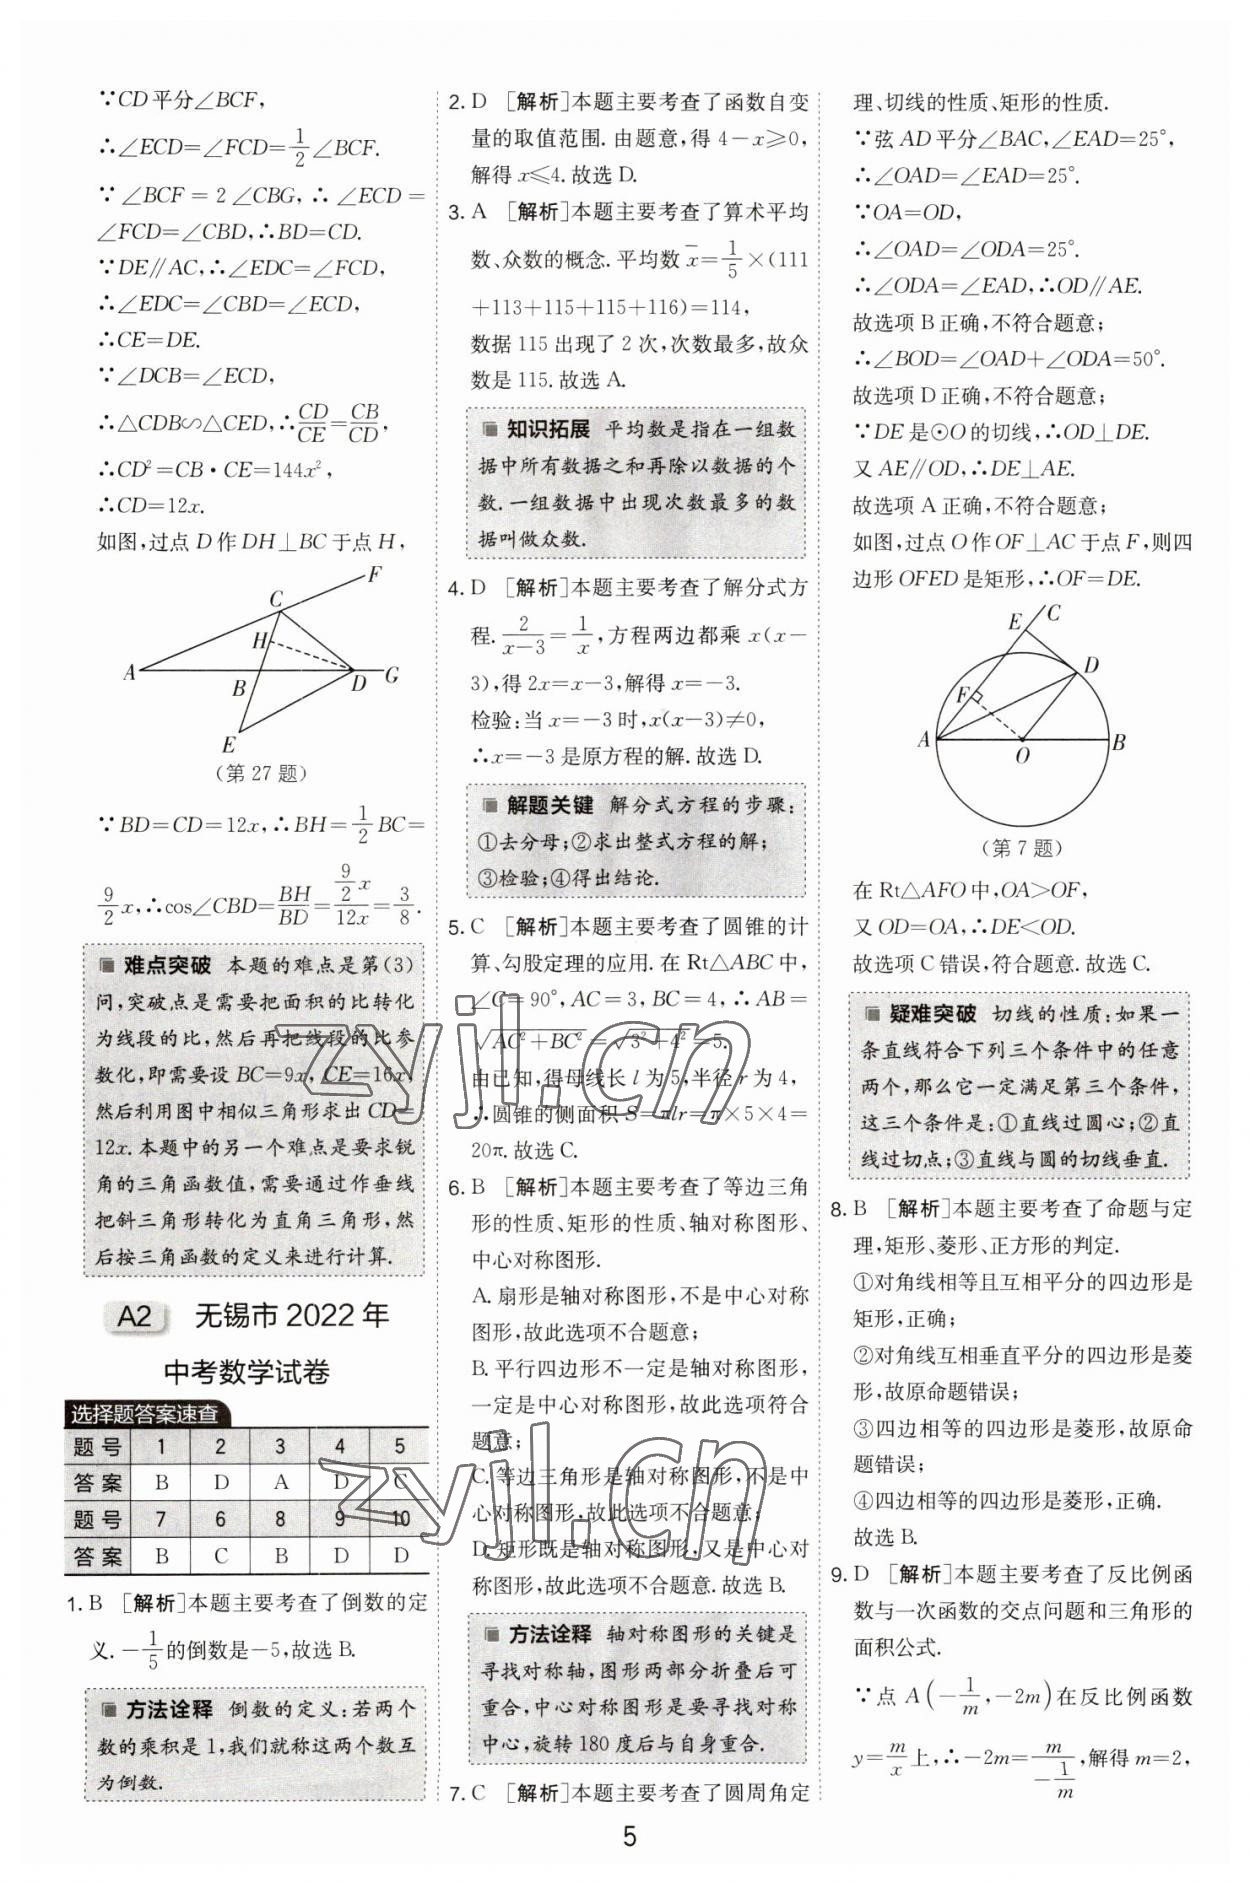 ∵CD平分∠BCF,
∴∠ECD=∠FCD=1/2∠BCF.
∵∠BCF=2∠CBG,∴∠ECD=
∠FCD=∠CBD,∴BD=CD.
∵DE∥AC,∴∠EDC=∠FCD,
∴∠EDC=∠CBD=∠ECD,
∴CE=DE.
∵∠DCB=∠ECD,
∴△CDB∽△CED,∴CD/CE=CB/CD,
∴CD²=CB·CE=144x²,
∴CD=12x.
如图,过点D作DH⊥BC于点H,
F
C
H
A
B
D
G
E
(第27题)
∵BD=CD=12x,∴BH=1/2BC=
9/2x,∴cos∠CBD=BH/BD=(9/2x)/12x=3/8.
难点突破 本题的难点是第(3)
问,突破点是需要把面积的比转化
为线段的比,然后再把线段的比参
数化,即需要设BC=9x,CE=16x,
然后利用图中相似三角形求出CD=
12x.本题中的另一个难点是要求锐
角的三角函数值,需要通过作垂线
把斜三角形转化为直角三角形,然
后按三角函数的定义来进行计算.
A2 无锡市2022年
中考数学试卷
选择题答案速查
题号 1 2 3 4 5
答案 B D A D C
题号 7 6 8 9 10
答案 B C B D D
1. B [解析]本题主要考查了倒数的定
义.-1/5的倒数是-5,故选B.
方法诠释 倒数的定义:若两个
数的乘积是1,我们就称这两个数互
为倒数.
2. D [解析]本题主要考查了函数自变
量的取值范围.由题意,得4-x≥0,
解得x≤4.故选D.
3. A [解析]本题主要考查了算术平均
数、众数的概念.平均数x̄=1/5×(111
+113+115+115+116)=114,
数据115出现了2次,次数最多,故众
数是115.故选A.
知识拓展 平均数是指在一组数
据中所有数据之和再除以数据的个
数.一组数据中出现次数最多的数
据叫做众数.
4. D [解析]本题主要考查了解分式方
程.2/(x-3)=1/x,方程两边都乘x(x-
3),得2x=x-3,解得x=-3.
检验:当x=-3时,x(x-3)≠0,
∴x=-3是原方程的解.故选D.
解题关键 解分式方程的步骤:
①去分母;②求出整式方程的解;
③检验;④得出结论.
5. C [解析]本题主要考查了圆锥的计
算、勾股定理的应用.在Rt△ABC中,
∠C=90°,AC=3,BC=4,∴AB=
√(AC²+BC²)=√(3²+4²)=5.
由已知,得母线长l为5,半径r为4,
∴圆锥的侧面积S=πlr=π×5×4=
20π.故选C.
6. B [解析]本题主要考查了等边三角
形的性质、矩形的性质、轴对称图形、
中心对称图形.
A.扇形是轴对称图形,不是中心对称
图形,故此选项不合题意;
B.平行四边形不一定是轴对称图形,
一定是中心对称图形,故此选项符合
题意;
C.等边三角形是轴对称图形,不是中
心对称图形,故此选项不合题意;
D.矩形既是轴对称图形,又是中心对
称图形,故此选项不合题意.故选B.
方法诠释 轴对称图形的关键是
寻找对称轴,图形两部分折叠后可
重合,中心对称图形是要寻找对称
中心,旋转180度后与自身重合.
7. C [解析]本题主要考查了圆周角定
理、切线的性质、矩形的性质.
∵弦AD平分∠BAC,∠EAD=25°,
∴∠OAD=∠EAD=25°.
∵OA=OD,
∴∠OAD=∠ODA=25°.
∴∠ODA=∠EAD,∴OD∥AE.
故选项B正确,不符合题意;
∴∠BOD=∠OAD+∠ODA=50°.
故选项D正确,不符合题意;
∵DE是⊙O的切线,∴OD⊥DE.
又AE∥OD,∴DE⊥AE.
故选项A正确,不符合题意;
如图,过点O作OF⊥AC于点F,则四
边形OFED是矩形,∴OF=DE.
E
C
D
F
A
O
B
(第7题)
在Rt△AFO中,OA>OF,
又OD=OA,∴DE<OD.
故选项C错误,符合题意.故选C.
疑难突破 切线的性质:如果一
条直线符合下列三个条件中的任意
两个,那么它一定满足第三个条件,
这三个条件是:①直线过圆心;②直
线过切点;③直线与圆的切线垂直.
8. B [解析]本题主要考查了命题与定
理,矩形、菱形、正方形的判定.
①对角线相等且互相平分的四边形是
矩形,正确;
②对角线互相垂直平分的四边形是菱
形,故原命题错误;
③四边相等的四边形是菱形,故原命
题错误;
④四边相等的四边形是菱形,正确.
故选B.
9. D [解析]本题主要考查了反比例函
数与一次函数的交点问题和三角形的
面积公式.
∵点A(-1/m,-2m)在反比例函数
y=m/x上,∴-2m=m/(-1/m),解得m=2,
5
zyjl.cn
zyjl.cn